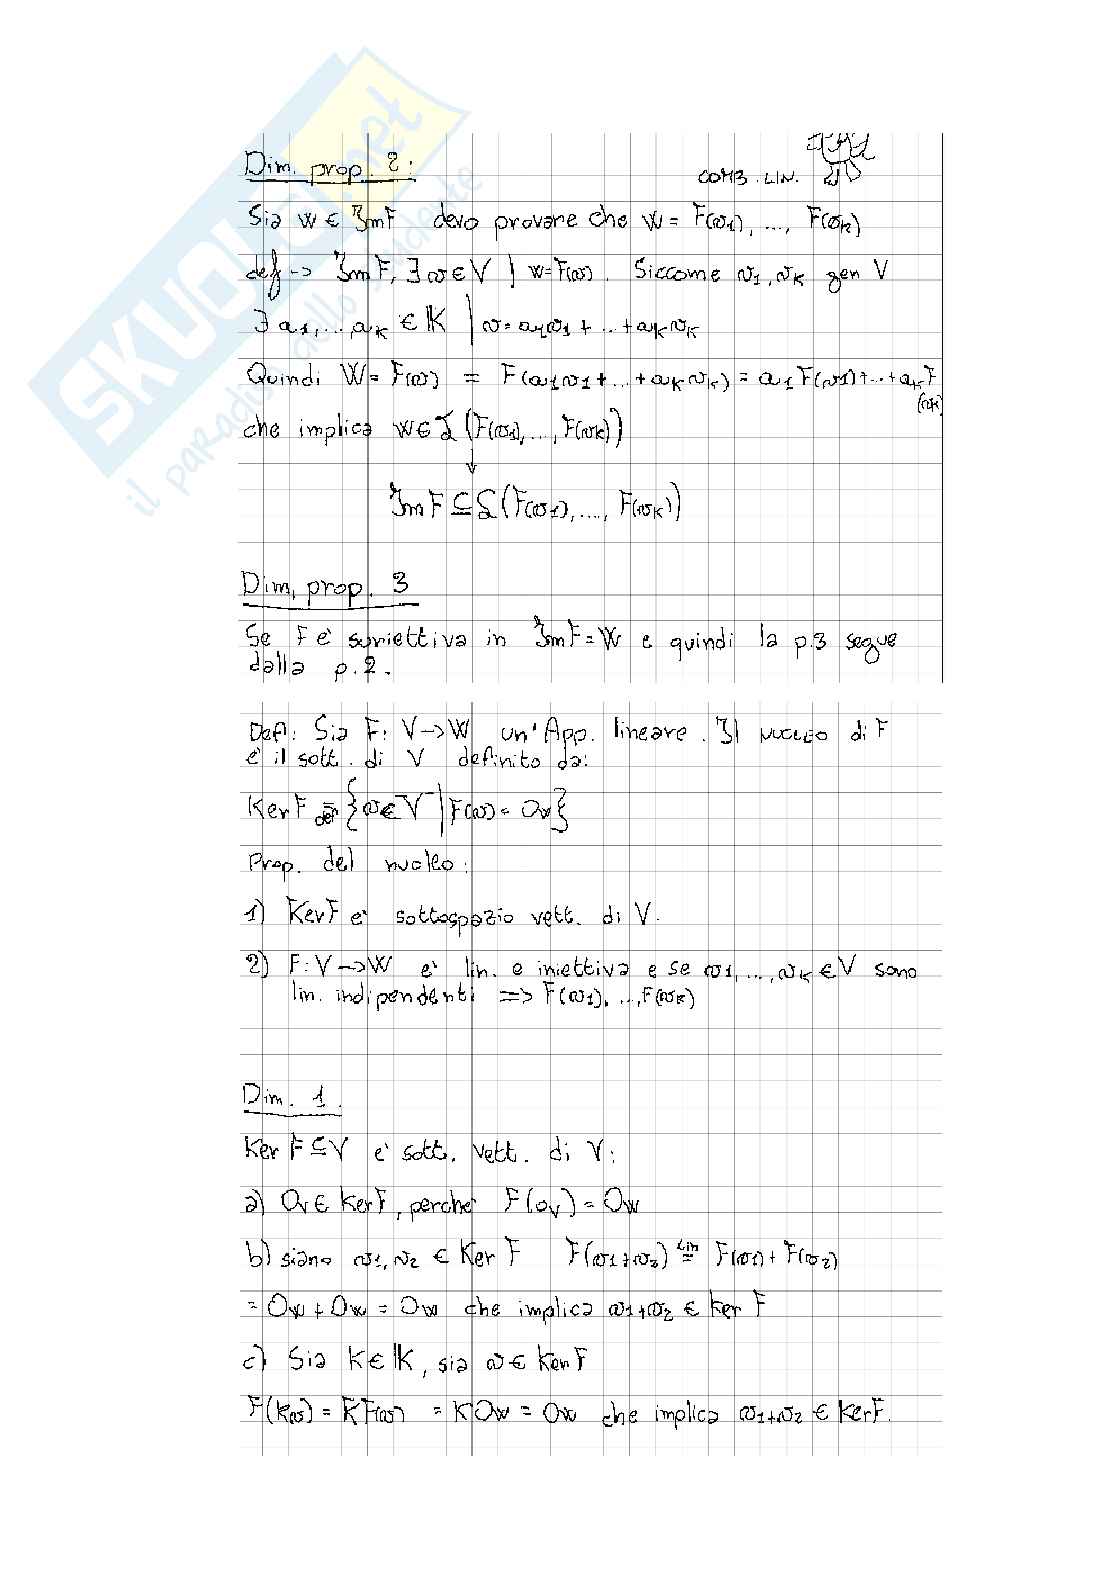 SKUOLA.net
il paradiso dello studente
Dim. prop. 2:
COMB. LIN.
Sia w ∈ ImF devo provare che w = F(v1), ..., F(vk)
def -> ImF, ∃ v ∈ V | w = F(v). Siccome v1, vk gen V
∃ a1, ..., ak ∈ K | v = a1v1 + .. + akvk
Quindi W = F(v) = F(a1v1 + ... + akvk) = a1F(v1) + .. + akF(vk)
che implica w ∈ L(F(v1), ..., F(vk))
↓
ImF ⊆ L(F(v1), ..., F(vk))
Dim. prop. 3
Se F è suriettiva in ImF = W e quindi la p.3 segue
dalla p.2.
Def: Sia F: V -> W un'App. lineare. Il NUCLEO di F
è il sott. di V definito da:
KerF =def {v ∈ V | F(v) = Ow}
Prop. del nucleo:
1) KerF è sottospazio vett. di V.
2) F: V -> W è lin. e iniettiva e se v1, ..., vk ∈ V sono
lin. indipendenti => F(v1), ..., F(vk)
Dim. 1.
Ker F ⊆ V è sott. vett. di V:
a) Ov ∈ KerF, perché F(Ov) = Ow
b) siano v1, v2 ∈ Ker F F(v1+v2) =Lin F(v1) + F(v2)
= Ow + Ow = Ow che implica v1+v2 ∈ ker F
c) Sia K ∈ K, sia v ∈ KerF
F(kv) = KF(v) = KOw = Ow che implica v1+v2 ∈ KerF.